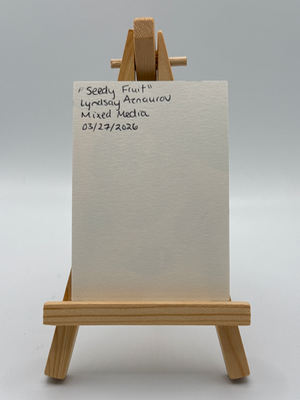 "Seedy Fruit"
Lyndsay Aznaurov
Mixed Media
03/27/2026